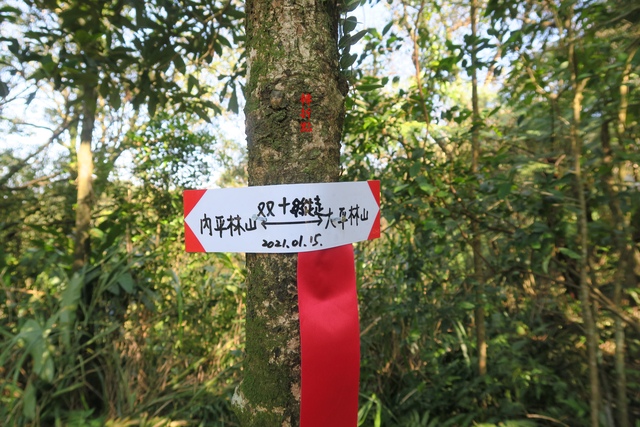 双十縱走
内平林山 ⟷ 大平林山
2021.01.15.